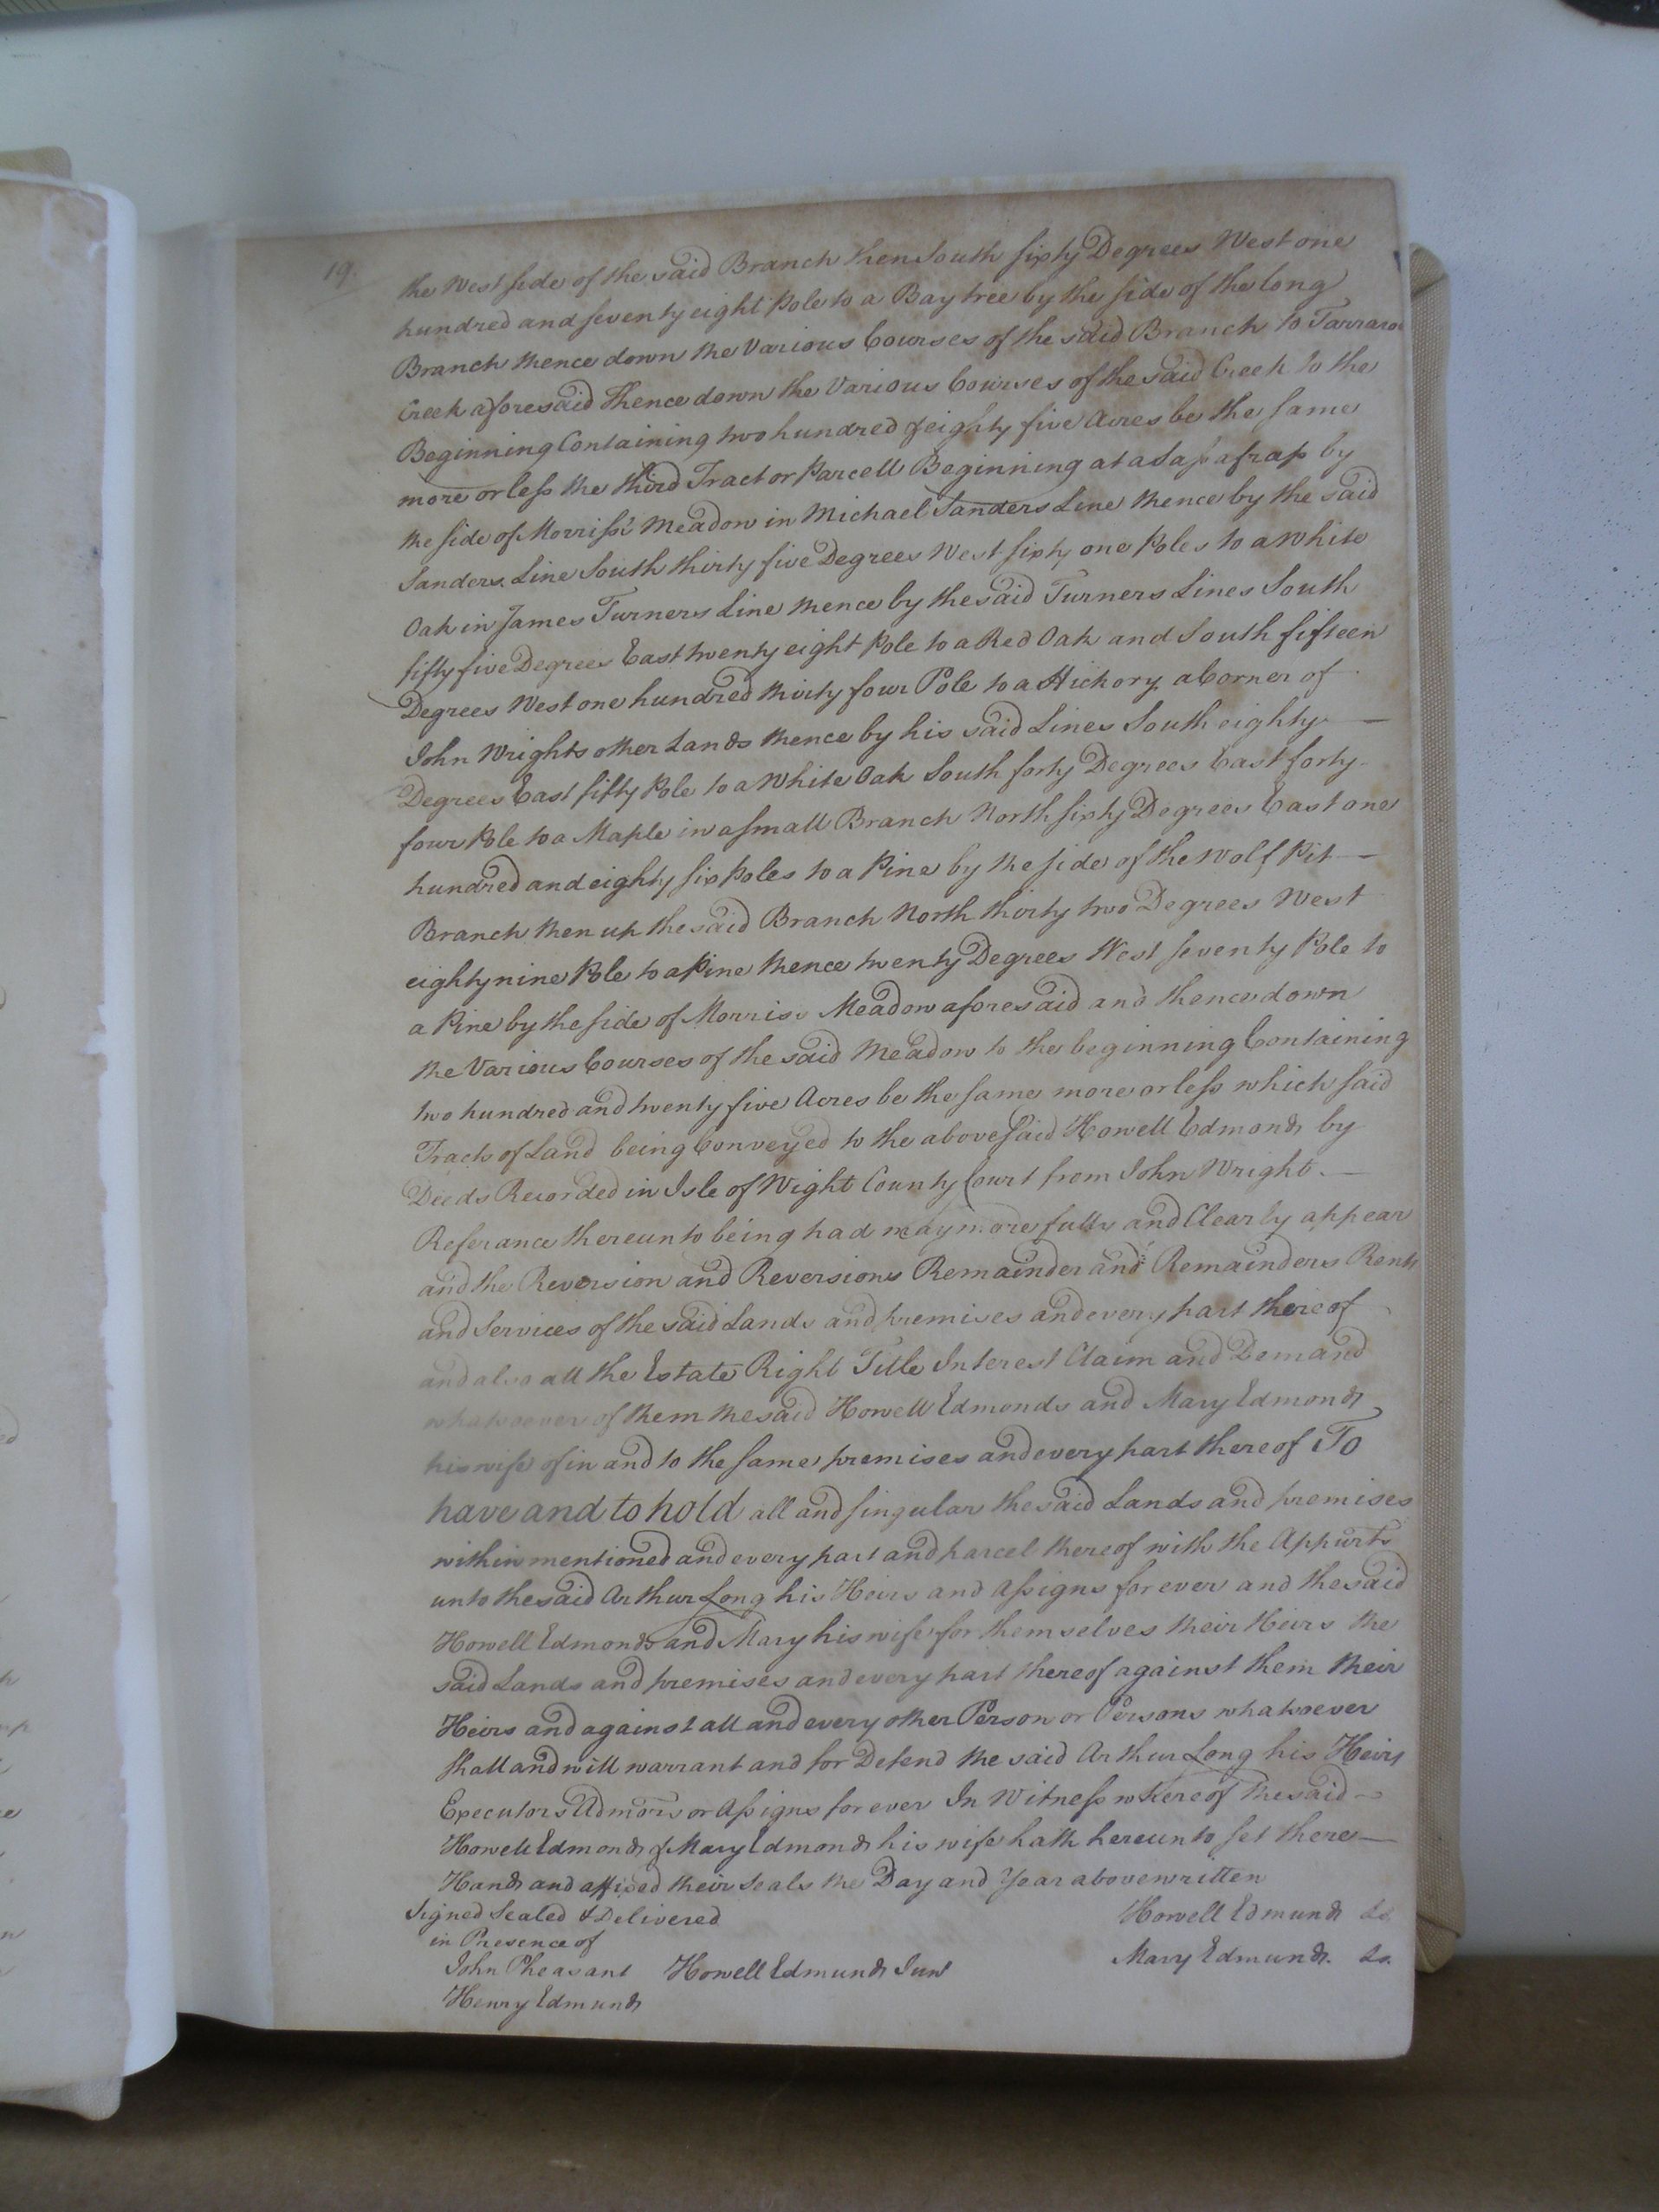 19.
the West side of the said Branch then South sixty Degrees West one
hundred and seventy eight Pole to a Bay tree by the side of the long
Branch thence down the Various Courses of the said Branch to Tarraro
Creek aforesaid Thence down the Various Courses of the said Creek to the
Beginning Containing two hundred & eighty five Acres be the same
more or less the third Tract or Parcell Beginning at a Sassafrass by
the side of Morriss's Meadow in Michael Sanders Line thence by the said
Sanders Line South thirty five Degrees West sixty one Poles to a White
Oak in James Turners Line thence by the said Turners Lines South
fifty five Degrees East twenty eight Pole to a Red Oak and South fifteen
Degrees West one hundred thirty four Pole to a Hickory a Corner of
John Wrights other Lands thence by his said Lines South eighty
Degrees East fifty Pole to a White Oak South forty Degrees East forty
four Pole to a Maple in a small Branch North sixty Degrees East one
hundred and eighty six Poles to a Pine by the side of the Wolf Pit
Branch then up the said Branch North thirty two Degrees West
eighty nine Pole to a Pine thence twenty Degrees West seventy Pole to
a Pine by the side of Morriss Meadow aforesaid and thence down
the Various Courses of the said Meadow to the beginning Containing
two hundred and twenty five Acres be the same more or less which said
Tracts of Land being Conveyed to the abovesaid Howell Edmonds by
Deeds Recorded in Isle of Wight County Court from John Wright
Referance thereunto being had may more fully and Clearly appear
and the Reversion and Reversions Remainder and Remainders Rents
and Services of the said Lands and premises and every part thereof
and also all the Estate Right Title Interest Claim and Demand
whatsoever of them the said Howell Edmonds and Mary Edmonds
his wife of in and to the same premises and every part thereof To
have and to hold all and singular the said Lands and premises
within mentioned and every part and parcel thereof with the Appurts
unto the said Arthur Long his Heirs and Assigns for ever and the said
Howell Edmonds and Mary his wife for themselves their Heirs the
said Lands and premises and every part thereof against them their
Heirs and against all and every other Person or Persons whatsoever
shall and will warrant and for Defend the said Arthur Long his Heirs
Executors Admors or Assigns for ever In Witness whereof the said
Howell Edmonds & Mary Edmonds his wife hath hereunto set there
Hands and affixed their Seals the Day and Year above written
Signed Sealed & Delivered Howell Edmunds Ls.
in Presence of
John Pheasant Howell Edmunds Junr Mary Edmunds. Ls.
Henry Edmunds